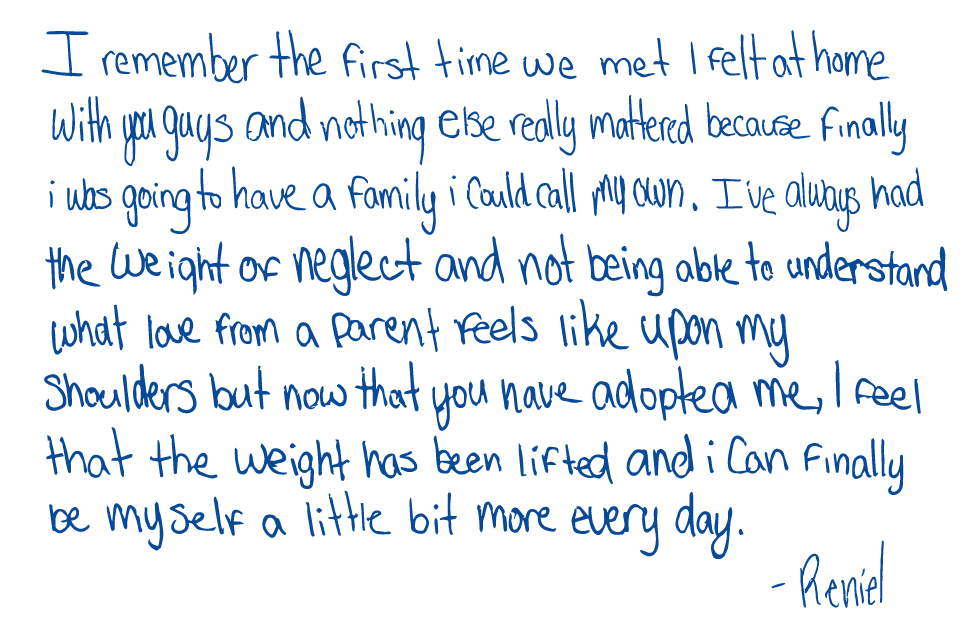 I remember the first time we met I felt at home
with you guys and nothing else really mattered because finally
i was going to have a family i could call my own. I've always had
the weight of neglect and not being able to understand
what love from a parent feels like upon my
shoulders but now that you have adopted me, I feel
that the weight has been lifted and i can finally
be myself a little bit more every day.
- Reniel